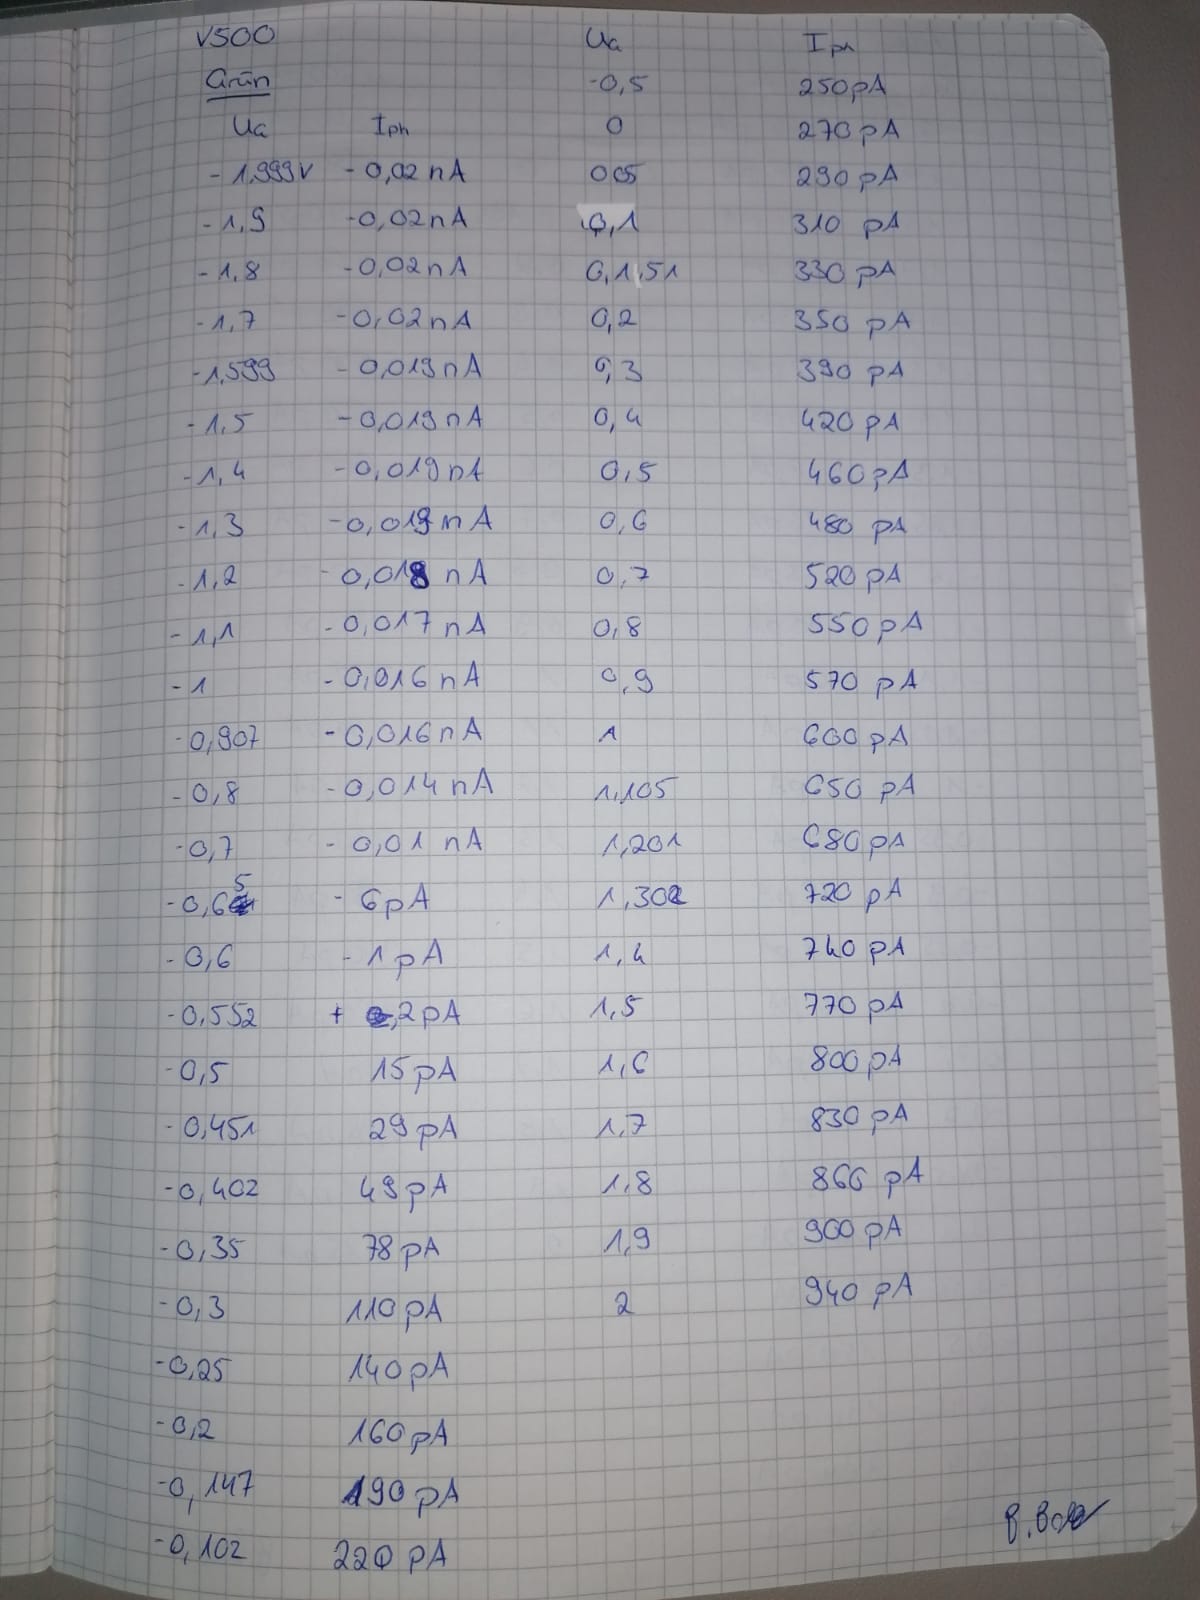 V500
Grün
Ua Iph
-1,999V -0,02 nA
-1,9 -0,02 nA
-1,8 -0,02 nA
-1,7 -0,02 nA
-1,599 -0,019 nA
-1,5 -0,019 nA
-1,4 -0,019 nA
-1,3 -0,019 nA
-1,2 -0,018 nA
-1,1 -0,017 nA
-1 -0,016 nA
-0,907 -0,016 nA
-0,8 -0,014 nA
-0,7 -0,01 nA
-0,65 -6 pA
-0,6 -1 pA
-0,552 + 2 pA
-0,5 15 pA
-0,451 29 pA
-0,402 49 pA
-0,35 78 pA
-0,3 110 pA
-0,25 140 pA
-0,2 160 pA
-0,147 190 pA
-0,102 220 pA
Ua Iph
-0,5 250 pA
0 270 pA
005 290 pA
0,1 310 pA
0,151 330 pA
0,2 350 pA
0,3 390 pA
0,4 420 pA
0,5 460 pA
0,6 480 pA
0,7 520 pA
0,8 550 pA
0,9 570 pA
1 600 pA
1,105 650 pA
1,201 680 pA
1,302 720 pA
1,4 740 pA
1,5 770 pA
1,6 800 pA
1,7 830 pA
1,8 866 pA
1,9 900 pA
2 940 pA